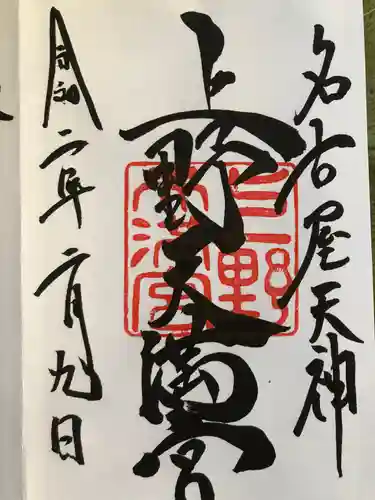 名古屋天神
上野天満宮
令和二年二月九日
上野天満宮